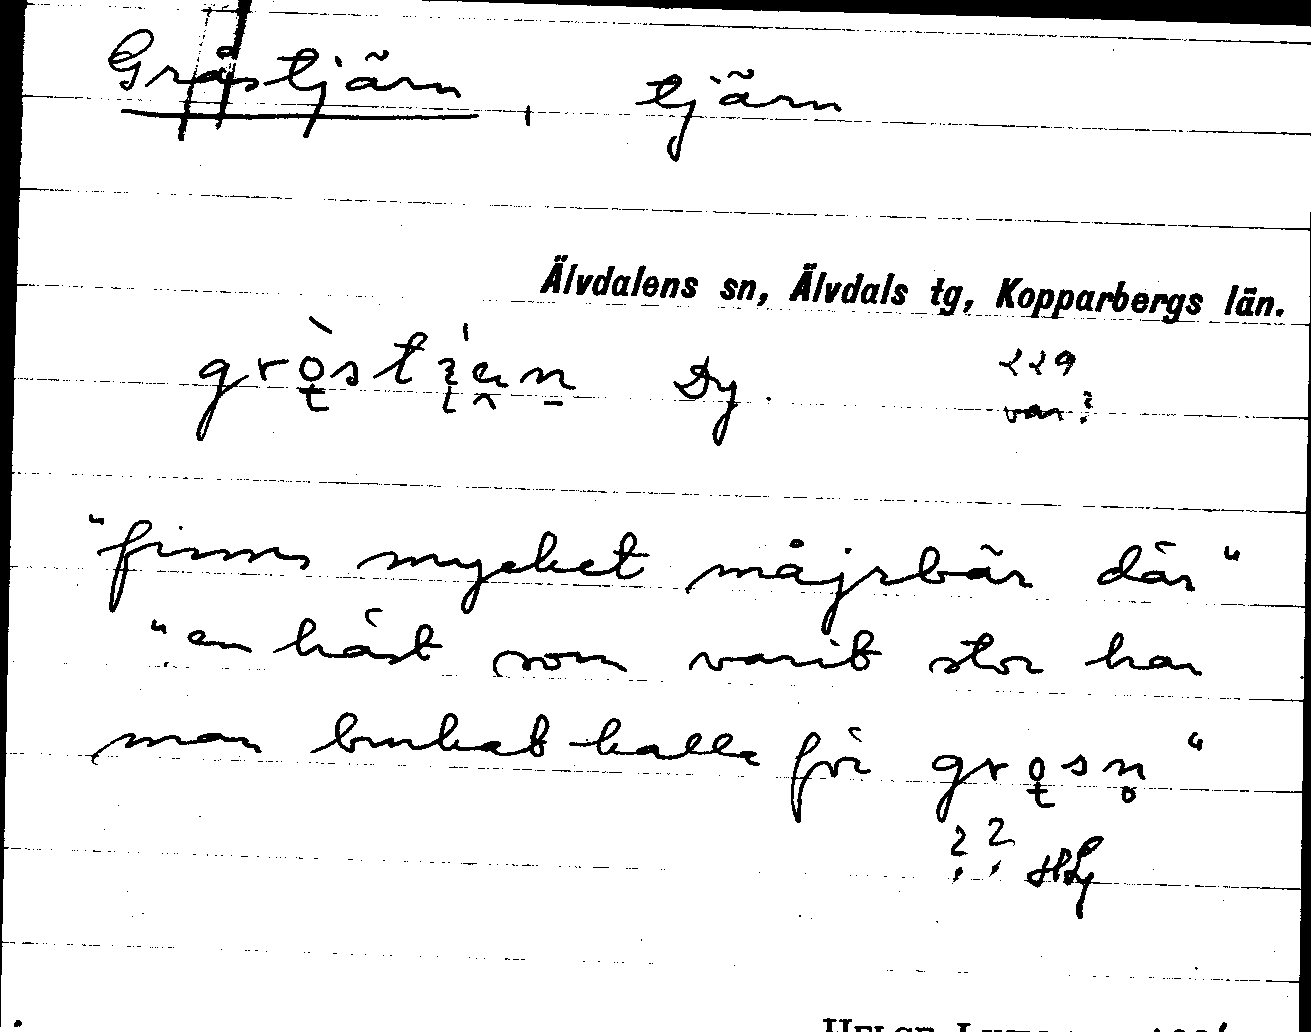 Gråstjärn, tjärn
Älvdalens sn, Älvdals tg, Kopparbergs län.
Dy. 229
var?
"finns mycket måjrbär där"
"en häst som varit stor har
man brukat kalla för
?? HLj